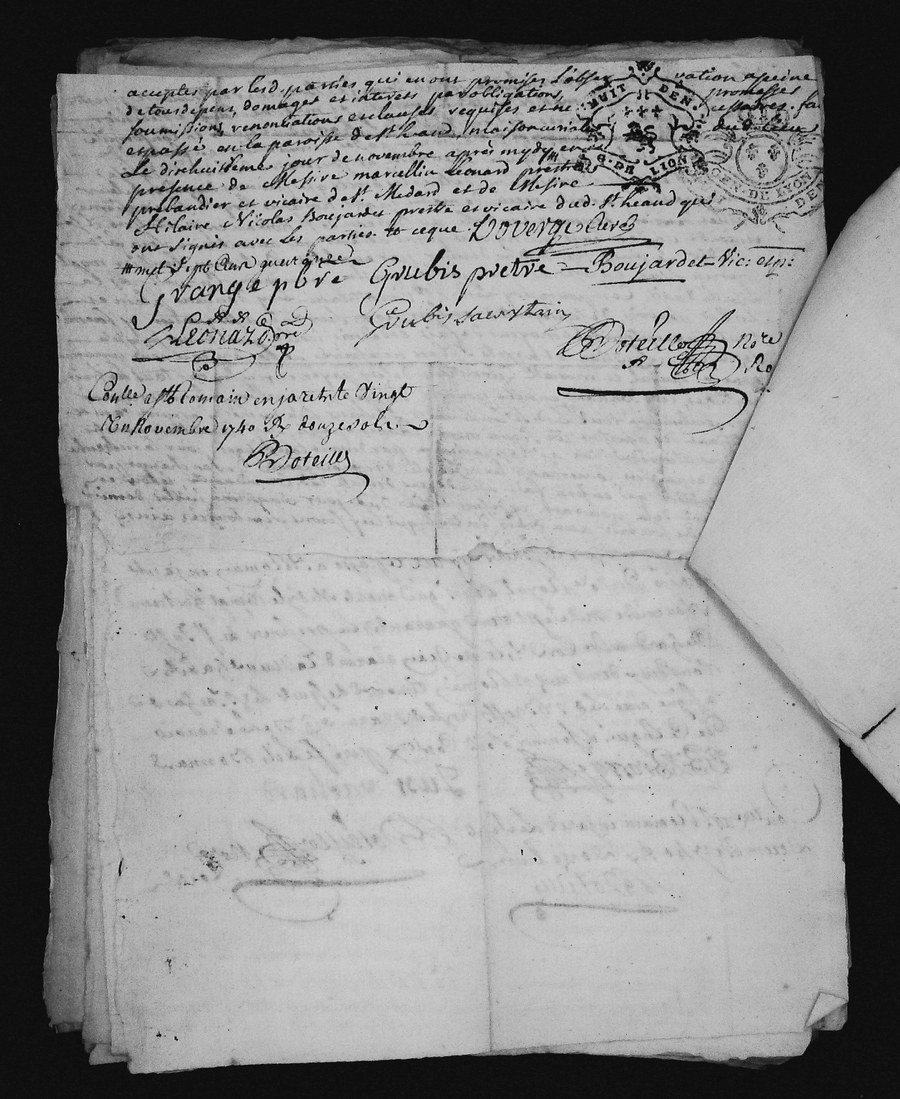 acceptes par lesd. parties, qui en ont promises l'obser vation a peine
de tous depens, domages et interets par obligations, promesses
soumissions, renonciations et clauses requises et ne cessaires. fa
et passé en la paroisse de st heaud, maison curiale dud. lieu
Le dixhuitieme jour de novembre après mydy en
presence de Messire marcellin Leonard prestre
prebandier et vicaire de st. Medard et de Messire
hilaire Nicolas Boujardet prestre et vicaire dud. st. heaud qui
ont signés avec les parties # ce que Duverge Clerc
# met sept cens quarante
Grange pbre Grubis pretre Boujardet Vic:
Leonard pre Grubis sacristain
Doteille Nore Ro
HUIT DEN. G. DE LYON
GEN. DE LYON DEN
Conlle a st Romain en jaretz le vingt
Un Novembre 1740 R douze sols
Doteille